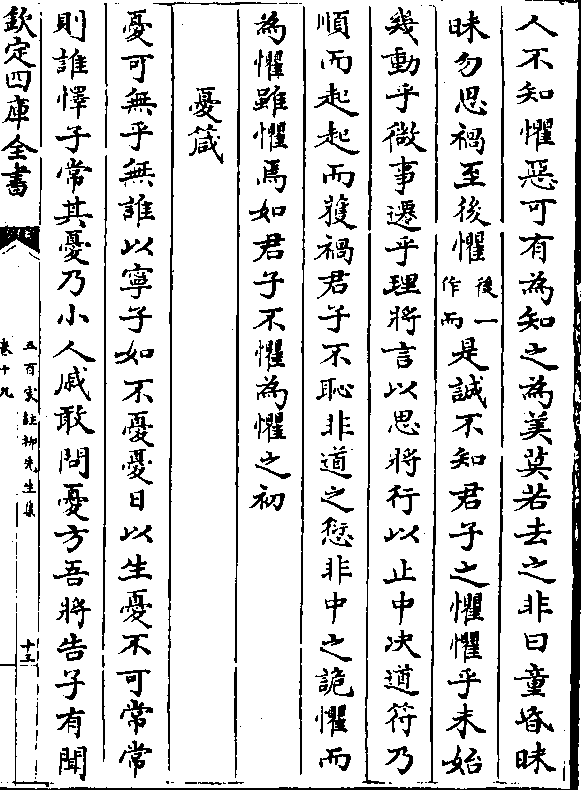 人不知懼惡可有為知之為美莫若去之非曰童昏昧
昧勿思禍至後懼後一作而是誠不知君子之懼懼乎未始
幾動乎微事遷乎理將言以思將行以止中决道符乃
順而起起而獲禍君子不恥非道之愆非中之詭懼而
為懼雖懼焉如君子不懼為懼之初
憂箴
憂可無乎無誰以寧子如不憂憂日以生憂不可常常
則誰懌子常其憂乃小人戚敢問憂方吾將告子有聞
欽定四庫全書
五百家註柳先生集
卷十九
十三